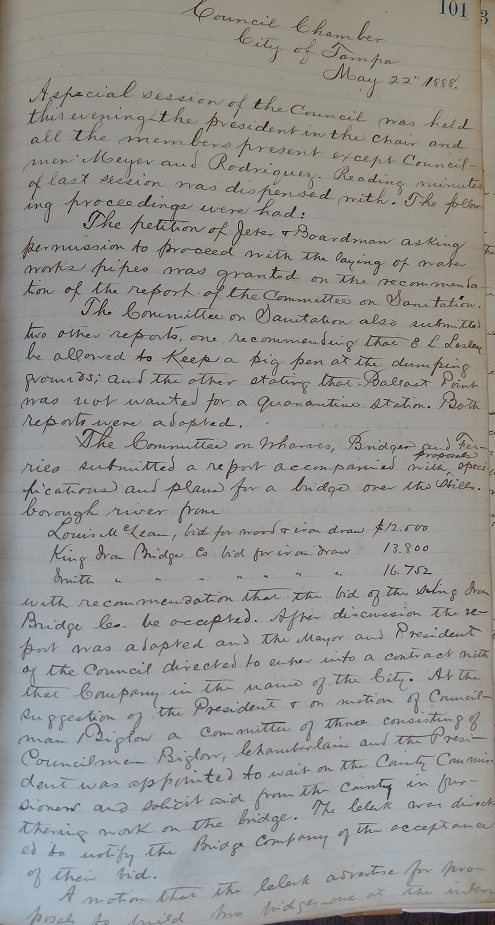 101
3
Council Chamber
City of Tampa
May 22" 1888.
A special session of the Council was held
this evening the president in the chair and
all the members present except Council-
men Meyer and Rodriguez. Reading minutes
of last session was dispensed with. The follow-
ing proceedings were had:
The petition of Jeter & Boardman asking
permission to proceed with the laying of water
works pipes was granted on the recommenda-
tion of the report of the Committee on Sanitation.
The Committee on Sanitation also submitted
two other reports, one recommending that E. L. Lesley
be allowed to keep a pig pen at the dumping
grounds; and the other stating that Ballast Point
was not wanted for a quarantine station. Both
reports were adopted.
The Committee on Wharves, Bridges and Fer-
ries submitted a report accompanied with proposals speci
fications and plans for a bridge over the Hills-
borough river from
Louis McLean, bid for wood & iron draw $12.000
King Iron Bridge Co bid for iron draw 13.800
Smith " " " " " " " 16.752
with recommendation that the bid of the King Iron
Bridge Co. be accepted. After discussion the re-
port was adopted and the Mayor and President
of the Council directed to enter into a contract with
that Company in the name of the City. At the
suggestion of the President & on motion of Council-
man Biglow a committee of three consisting of
Councilmen Biglow, Chamberlain and the Presi-
dent was appointed to wait on the County Commis-
sioners and solicit aid from the county in fur-
thering work on the bridge. The Clerk was direct
ed to notify the Bridge Company of the acceptance
of their bid.
A motion that the Clerk advertise for pro-
posals to build two bridges one at the inter